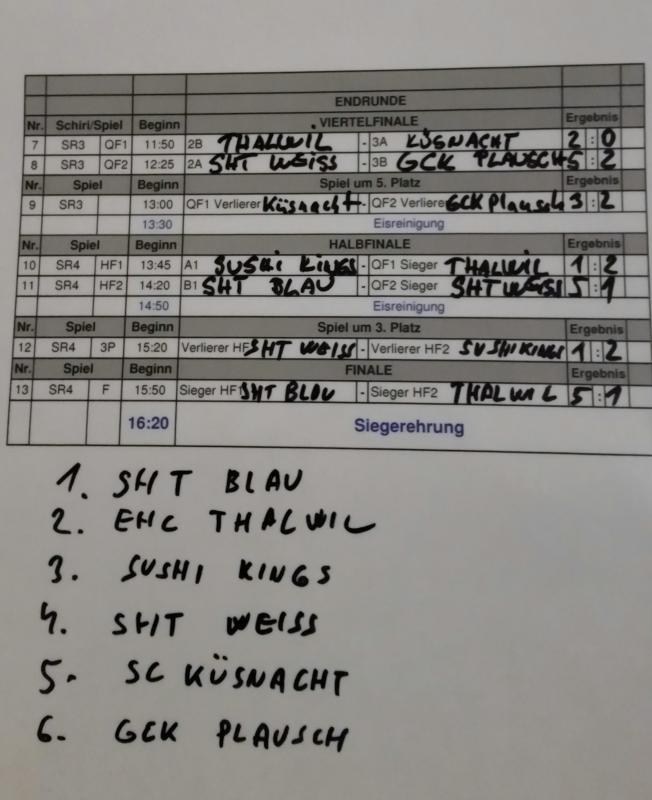 ENDRUNDE
VIERTELFINALE
Nr. Schiri/Spiel Beginn Ergebnis
7 SR3 QF1 11:50 2B THALWIL - 3A KÜSNACHT 2:0
8 SR3 QF2 12:25 2A SHT WEISS - 3B GCK PLAUSCH 5:2
Nr. Spiel Beginn Spiel um 5. Platz Ergebnis
9 SR3 13:00 QF1 Verlierer Küsnacht - QF2 Verlierer GCK Plausch 3:2
13:30 Eisreinigung
Nr. Spiel Beginn HALBFINALE Ergebnis
10 SR4 HF1 13:45 A1 SUSHI KINGS - QF1 Sieger THALWIL 1:2
11 SR4 HF2 14:20 B1 SHT BLAU - QF2 Sieger SHT WEISS 5:1
14:50 Eisreinigung
Nr. Spiel Beginn Spiel um 3. Platz Ergebnis
12 SR4 3P 15:20 Verlierer HF SHT WEISS - Verlierer HF2 SUSHI KINGS 1:2
Nr. Spiel Beginn FINALE Ergebnis
13 SR4 F 15:50 Sieger HF SHT BLAU - Sieger HF2 THALWIL 5:1
16:20 Siegerehrung
1. SHT BLAU
2. EHC THALWIL
3. SUSHI KINGS
4. SHT WEISS
5. SC KÜSNACHT
6. GCK PLAUSCH